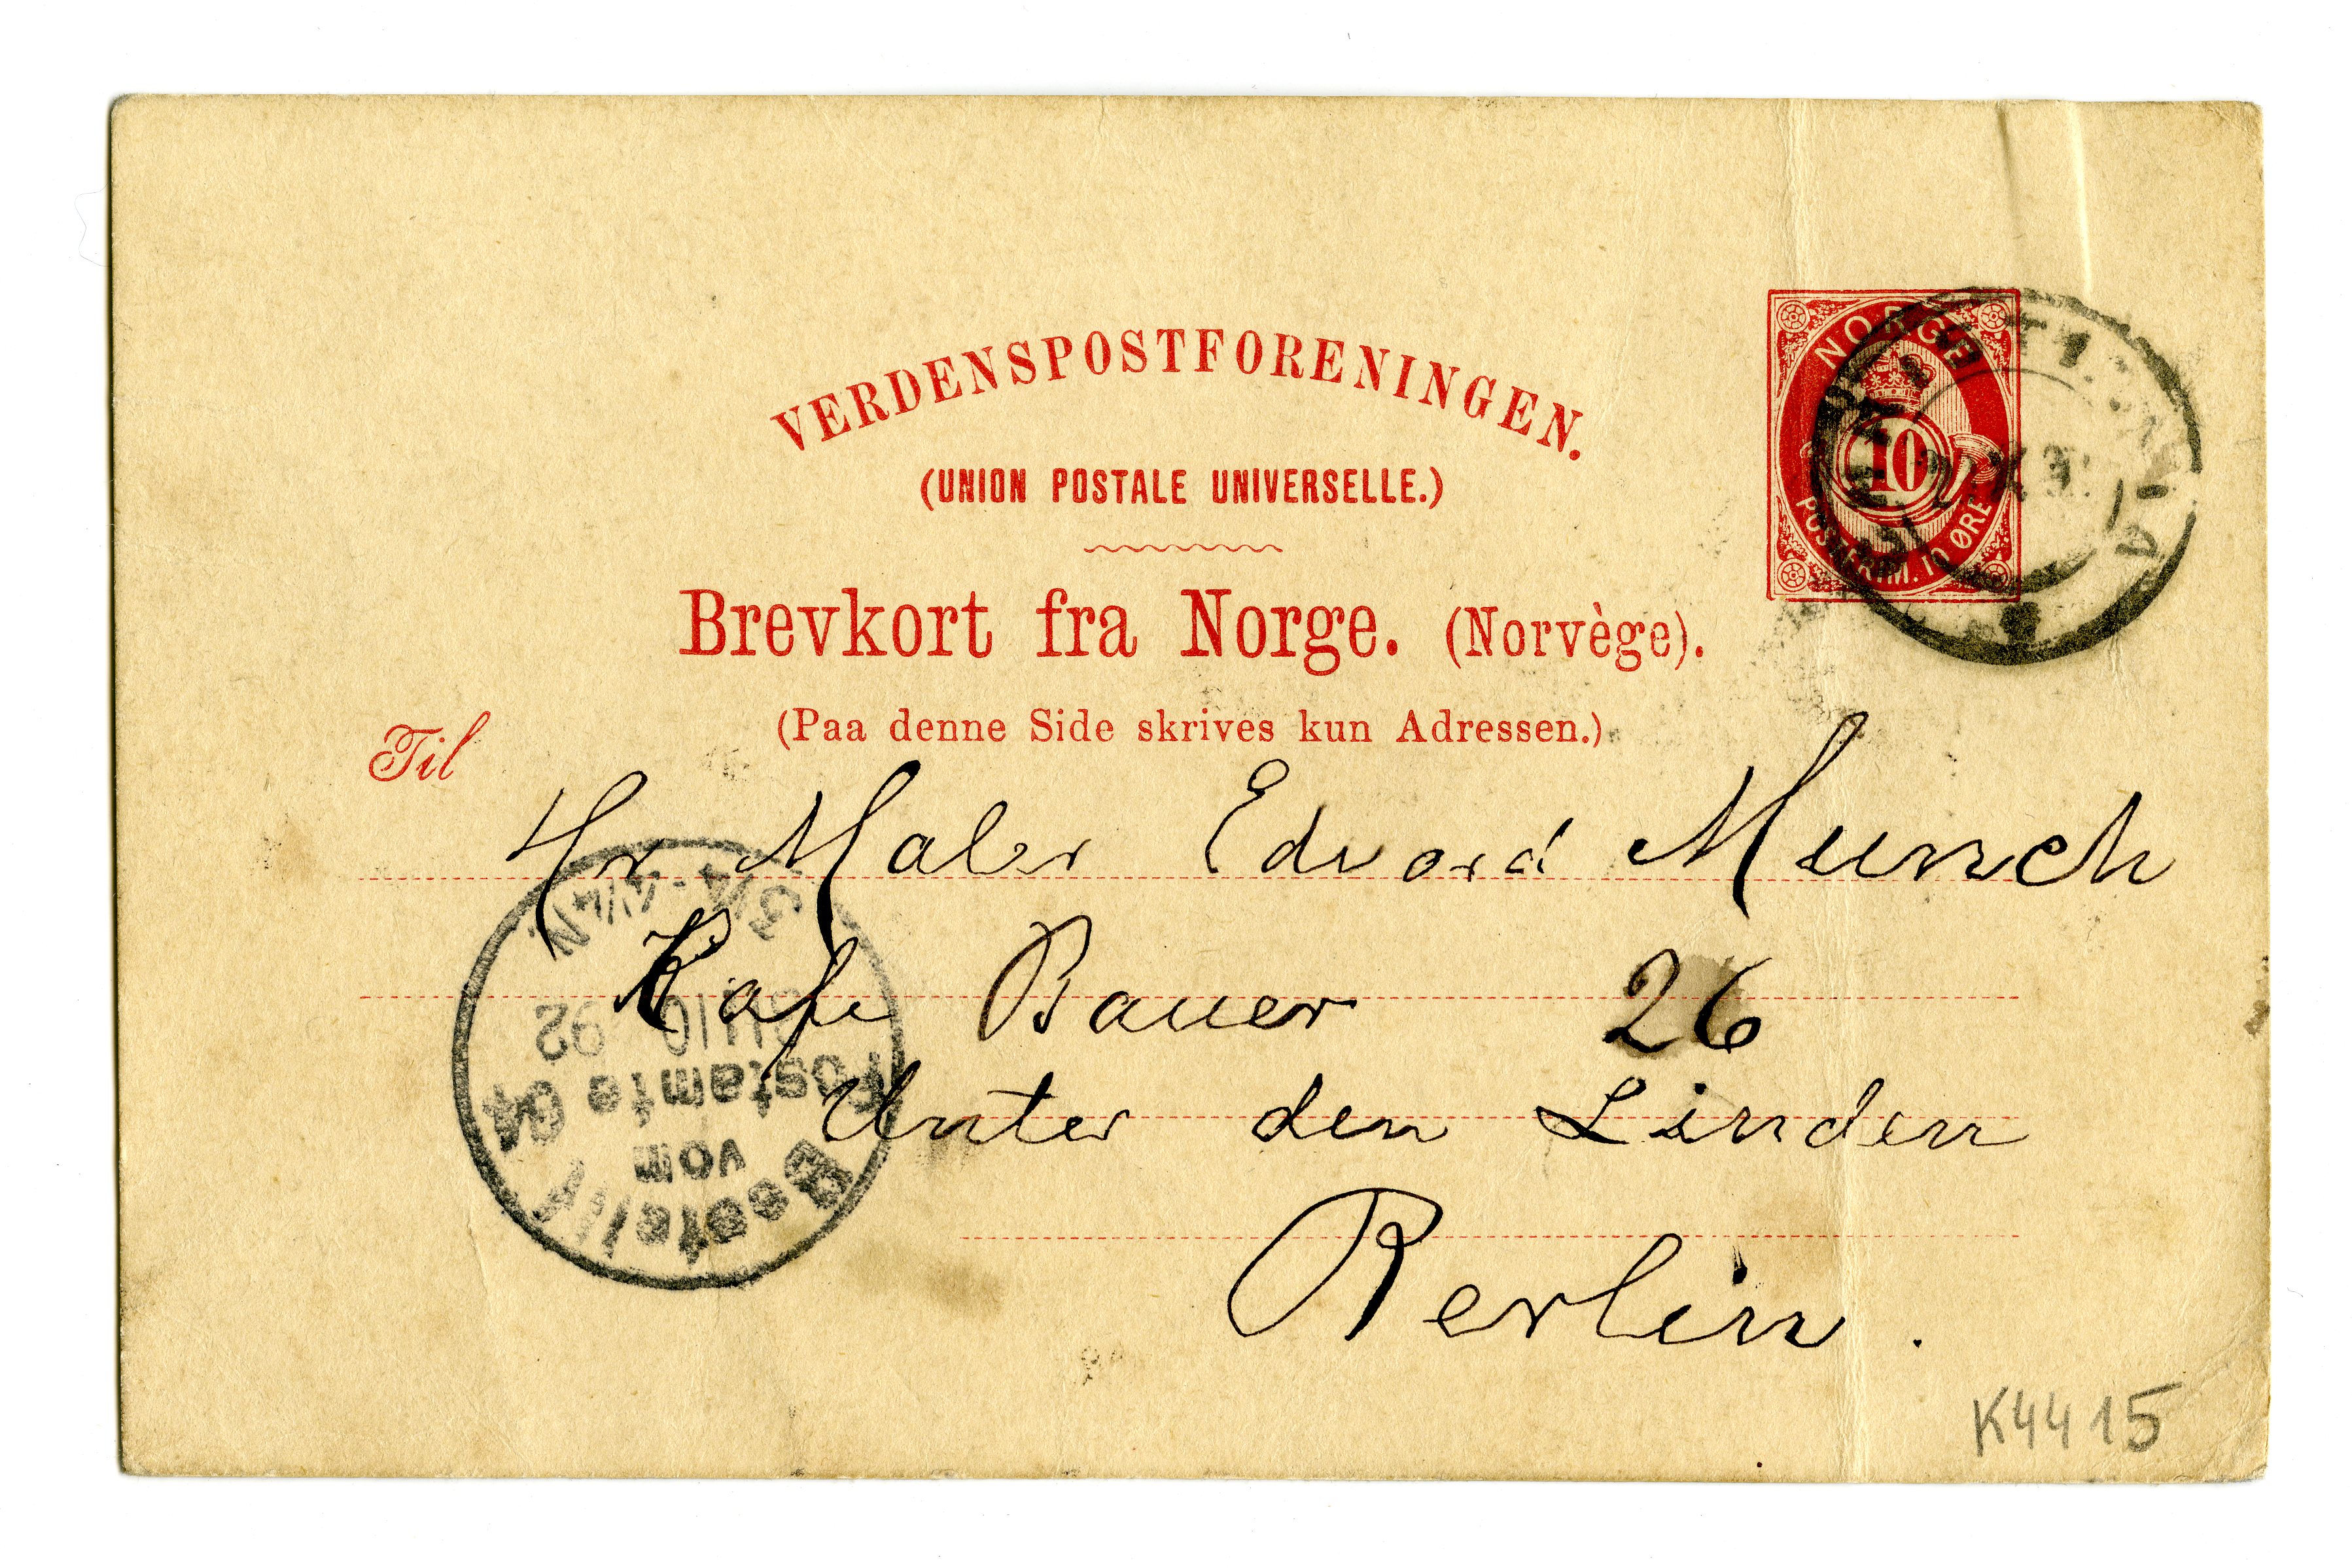 VERDENSPOSTFORENINGEN.
(UNION POSTALE UNIVERSELLE.)
Brevkort fra Norge. (Norvège).
(Paa denne Side skrives kun Adressen.)
NORGE
10
POSTFRIM. 10 ØRE
Til
Hr Maler Edvard Munch
Kafe Bauer 26
Unter den Linden
Berlin.
Bestellt
vom
Postamte 64
92
K4415